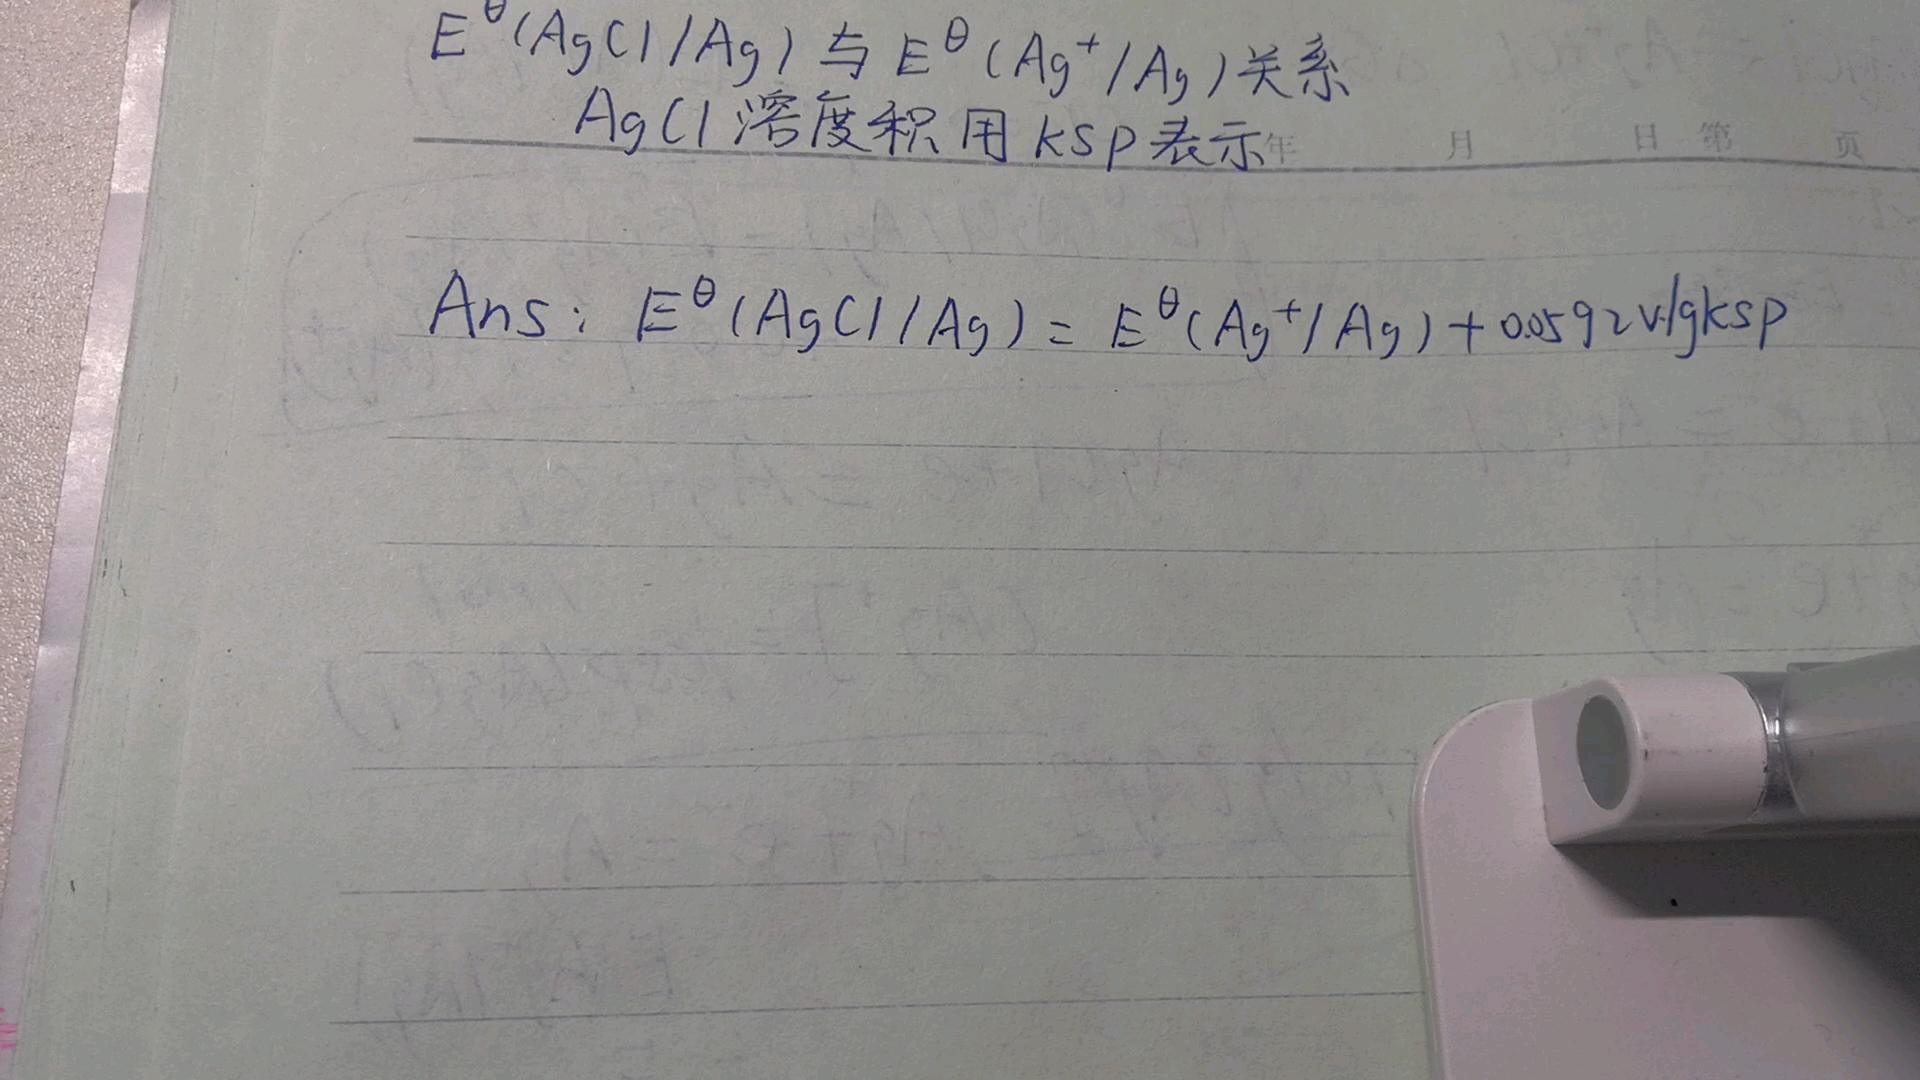 E^θ(AgCl/Ag) 与 E^θ(Ag⁺/Ag)关系
AgCl 溶度积用 KSP 表示
年 月 日 第 页
Ans: E^θ(AgCl/Ag) = E^θ(Ag⁺/Ag) + 0.0592V·lgKSP